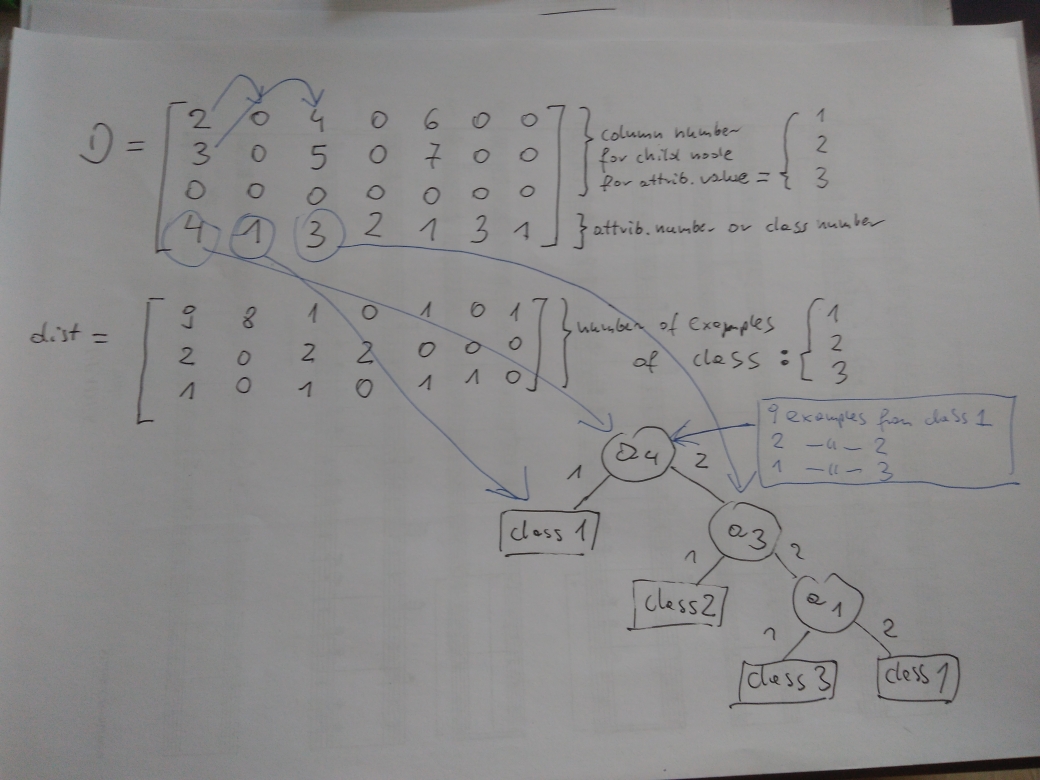 D = [ 2 0 4 0 6 0 0
3 0 5 0 7 0 0
0 0 0 0 0 0 0
4 1 3 2 1 3 1 ]
} column number
for child node
for attrib. value = {
1
2
3
} attrib. number or class number
dist = [ 9 8 1 0 1 0 1
2 0 2 2 0 0 0
1 0 1 0 1 1 0 ]
} number of examples
of class : {
1
2
3
9 examples from class 1
2 —"— 2
1 —"— 3
a4
1 2
class 1
a3
1 2
class 2
a1
1 2
class 3 class 1